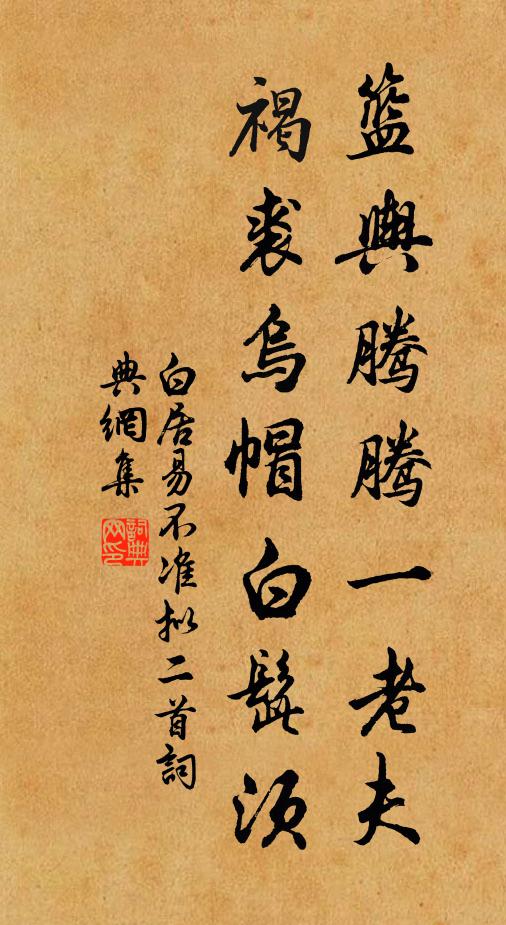 籃輿騰騰一老夫
褐裘烏帽白髭須
白居易不准拟二首詞
典網集
詞典网印